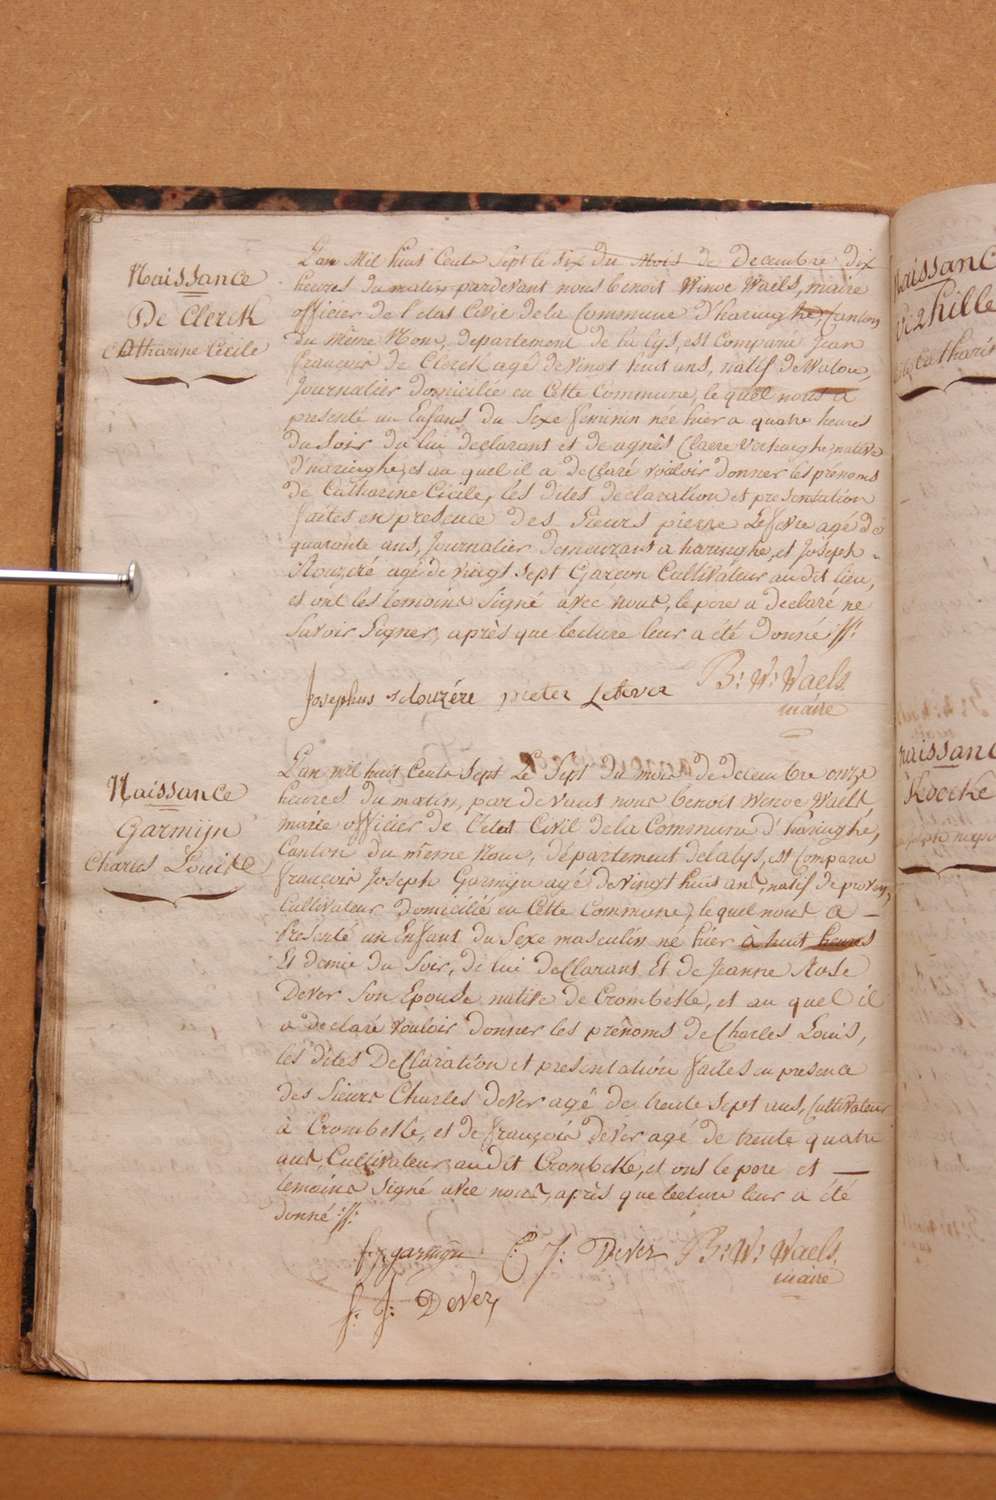 Naissance
De Clerck
Catharine Cecile
L'an Mil huit Cents Sept le Six du Mois de decembre dix
heures du matin pardevant nous benoit Winoc Waels, maire
officier de l'etat Civil de la Commune d'haringhe, Canton
du même Nom, departement de la lys, est Comparu Jean
françois de Clerck agé de vingt huit ans, natif de Watou,
Journalier domicilié en Cette Commune, le quel nous a
presenté un Enfant du Sexe feminin née hier a quatre heures
du Soir de lui declarant et de agnès Claere Verhaeghe native
d'haringhe, et au quel il a declaré vouloir donner les prenoms
de Catharine Cécile, les dites declaration et presentation
faites en presence des Sieurs pierre Lefevre agé de
quarante ans, Journalier demeurant a haringhe, et Joseph
Rouzeré agé de vingt Sept Garcon Cultivateur au dit lieu,
et ont les temoins Signé avec nous, le pere a declaré ne
Savoir Signer, après que lecture leur a été donné
Josephus Rouzére pieter Lefever B: W: Waels
maire
Naissance
Garmijn
Charles Louis
L'an mil huit Cents Sept Le Sept du mois de decembre onze
heures du matin, par devant nous benoit Winoc Waels,
maire officier de l'etat Civil de la Commune d'haringhe,
Canton du même Nom, département de la lys, est Comparu
françois Joseph Garmijn agé de vingt huit ans, natif de proven,
Cultivateur Domicilié en Cette Commune, le quel nous a
Presenté un Enfant du Sexe masculin né hier à huit heures
Et demie du Soir, de lui declarant Et de Jeanne Rose
Dever Son Epouse native de Crombeke, et au quel il
a declaré vouloir donner les prénoms de Charles Louis,
les dites Declaration et presentation faites en presence
des Sieurs Charles Dever agé de trente Sept ans, Cultivateur
à Crombeke, et de françois Dever agé de trente quatre
ans, Cultivateur au dit Crombeke, et ont le pere et
temoins Signé avec nous, après que lecture leur a été
donné
garmijn C: J: Dever B: W: Waels
maire
f: J: Dever
Naissance
Naissance